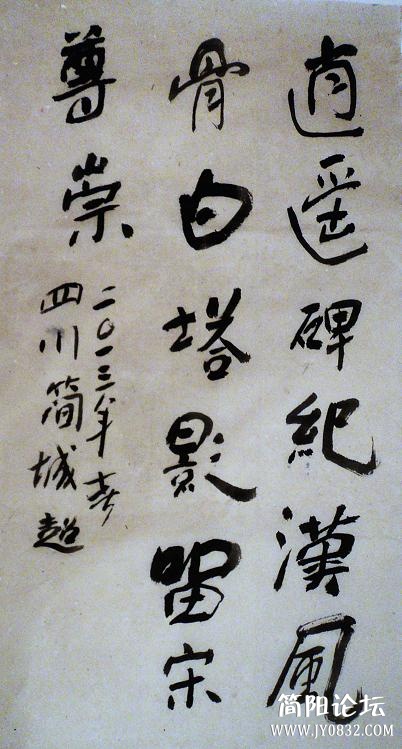 逍遥碑紀漢風
骨白塔影留宋
尊崇
二〇一三年春
四川简城超
简阳论坛
www.JY0832.com